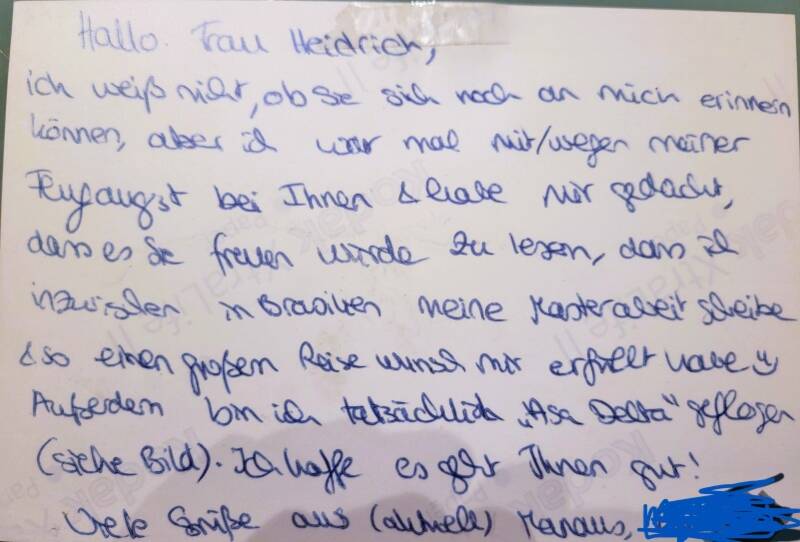 Hallo Frau Heidrich,
ich weiß nicht, ob Sie sich noch an mich erinnern
können, aber ich war mal mit/wegen meiner
Flugangst bei Ihnen & habe mir gedacht,
dass es Sie freuen würde zu lesen, dass ich
inzwischen in Brasilien meine Masterarbeit schreibe
& so einen großen Reisewunsch mir erfüllt habe
Außerdem bin ich tatsächlich "Asa Delta" geflogen
(siehe Bild). Ich hoffe es geht Ihnen gut!
Viele Grüße aus (aktuell) Manaus,